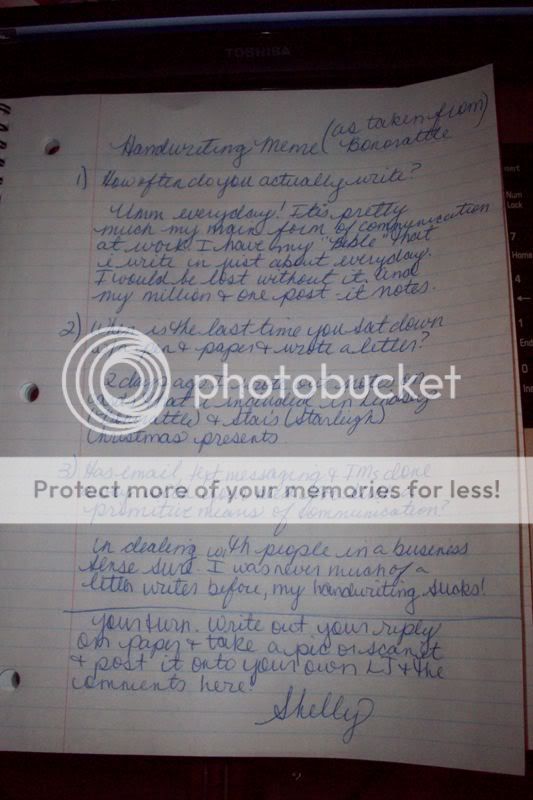 TOSHIBA
Handwriting Meme (as taken from)
Bonorattle
1) How often do you actually write?
Umm everyday! Its pretty
much my main form of communication
at work. I have my "Bible" that
i write in just about everyday.
I would be lost without it and
my million & one post-it notes.
2) When is the last time you sat down
pen & paper & wrote a letter?
2 days ago I
included in
& Stais (Starleigh)
Christmas presents
photobucket
3) Has email, text messaging & IMs done
Protect more of your memories for less!
primitive means of communication?
in dealing with people in a business
sense sure. I was never much of a
letter writer before, my handwriting sucks!
your turn. Write out your reply
on paper & take a pic or scan it
& post it onto your own LJ & the
comments here!
Shelly
Num
Lock
7
Home
4
←
1
End
0